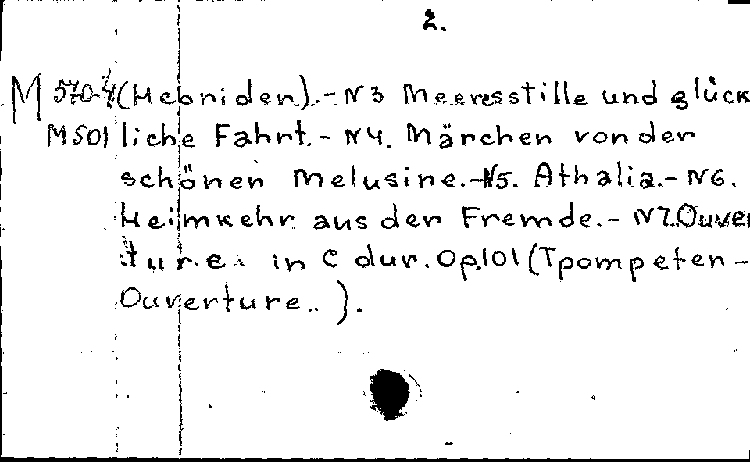 2.
M 570-4 (Hebriden).-N3 Meeresstille und glück
M501 liche Fahrt.-N4. Märchen von der
schönen Melusine.-N5. Athalia.-N6.
Heimkehr aus der Fremde.-N7.Ouver
ture in C dur. Op.101 (Tpompeten-
Ouverture..).